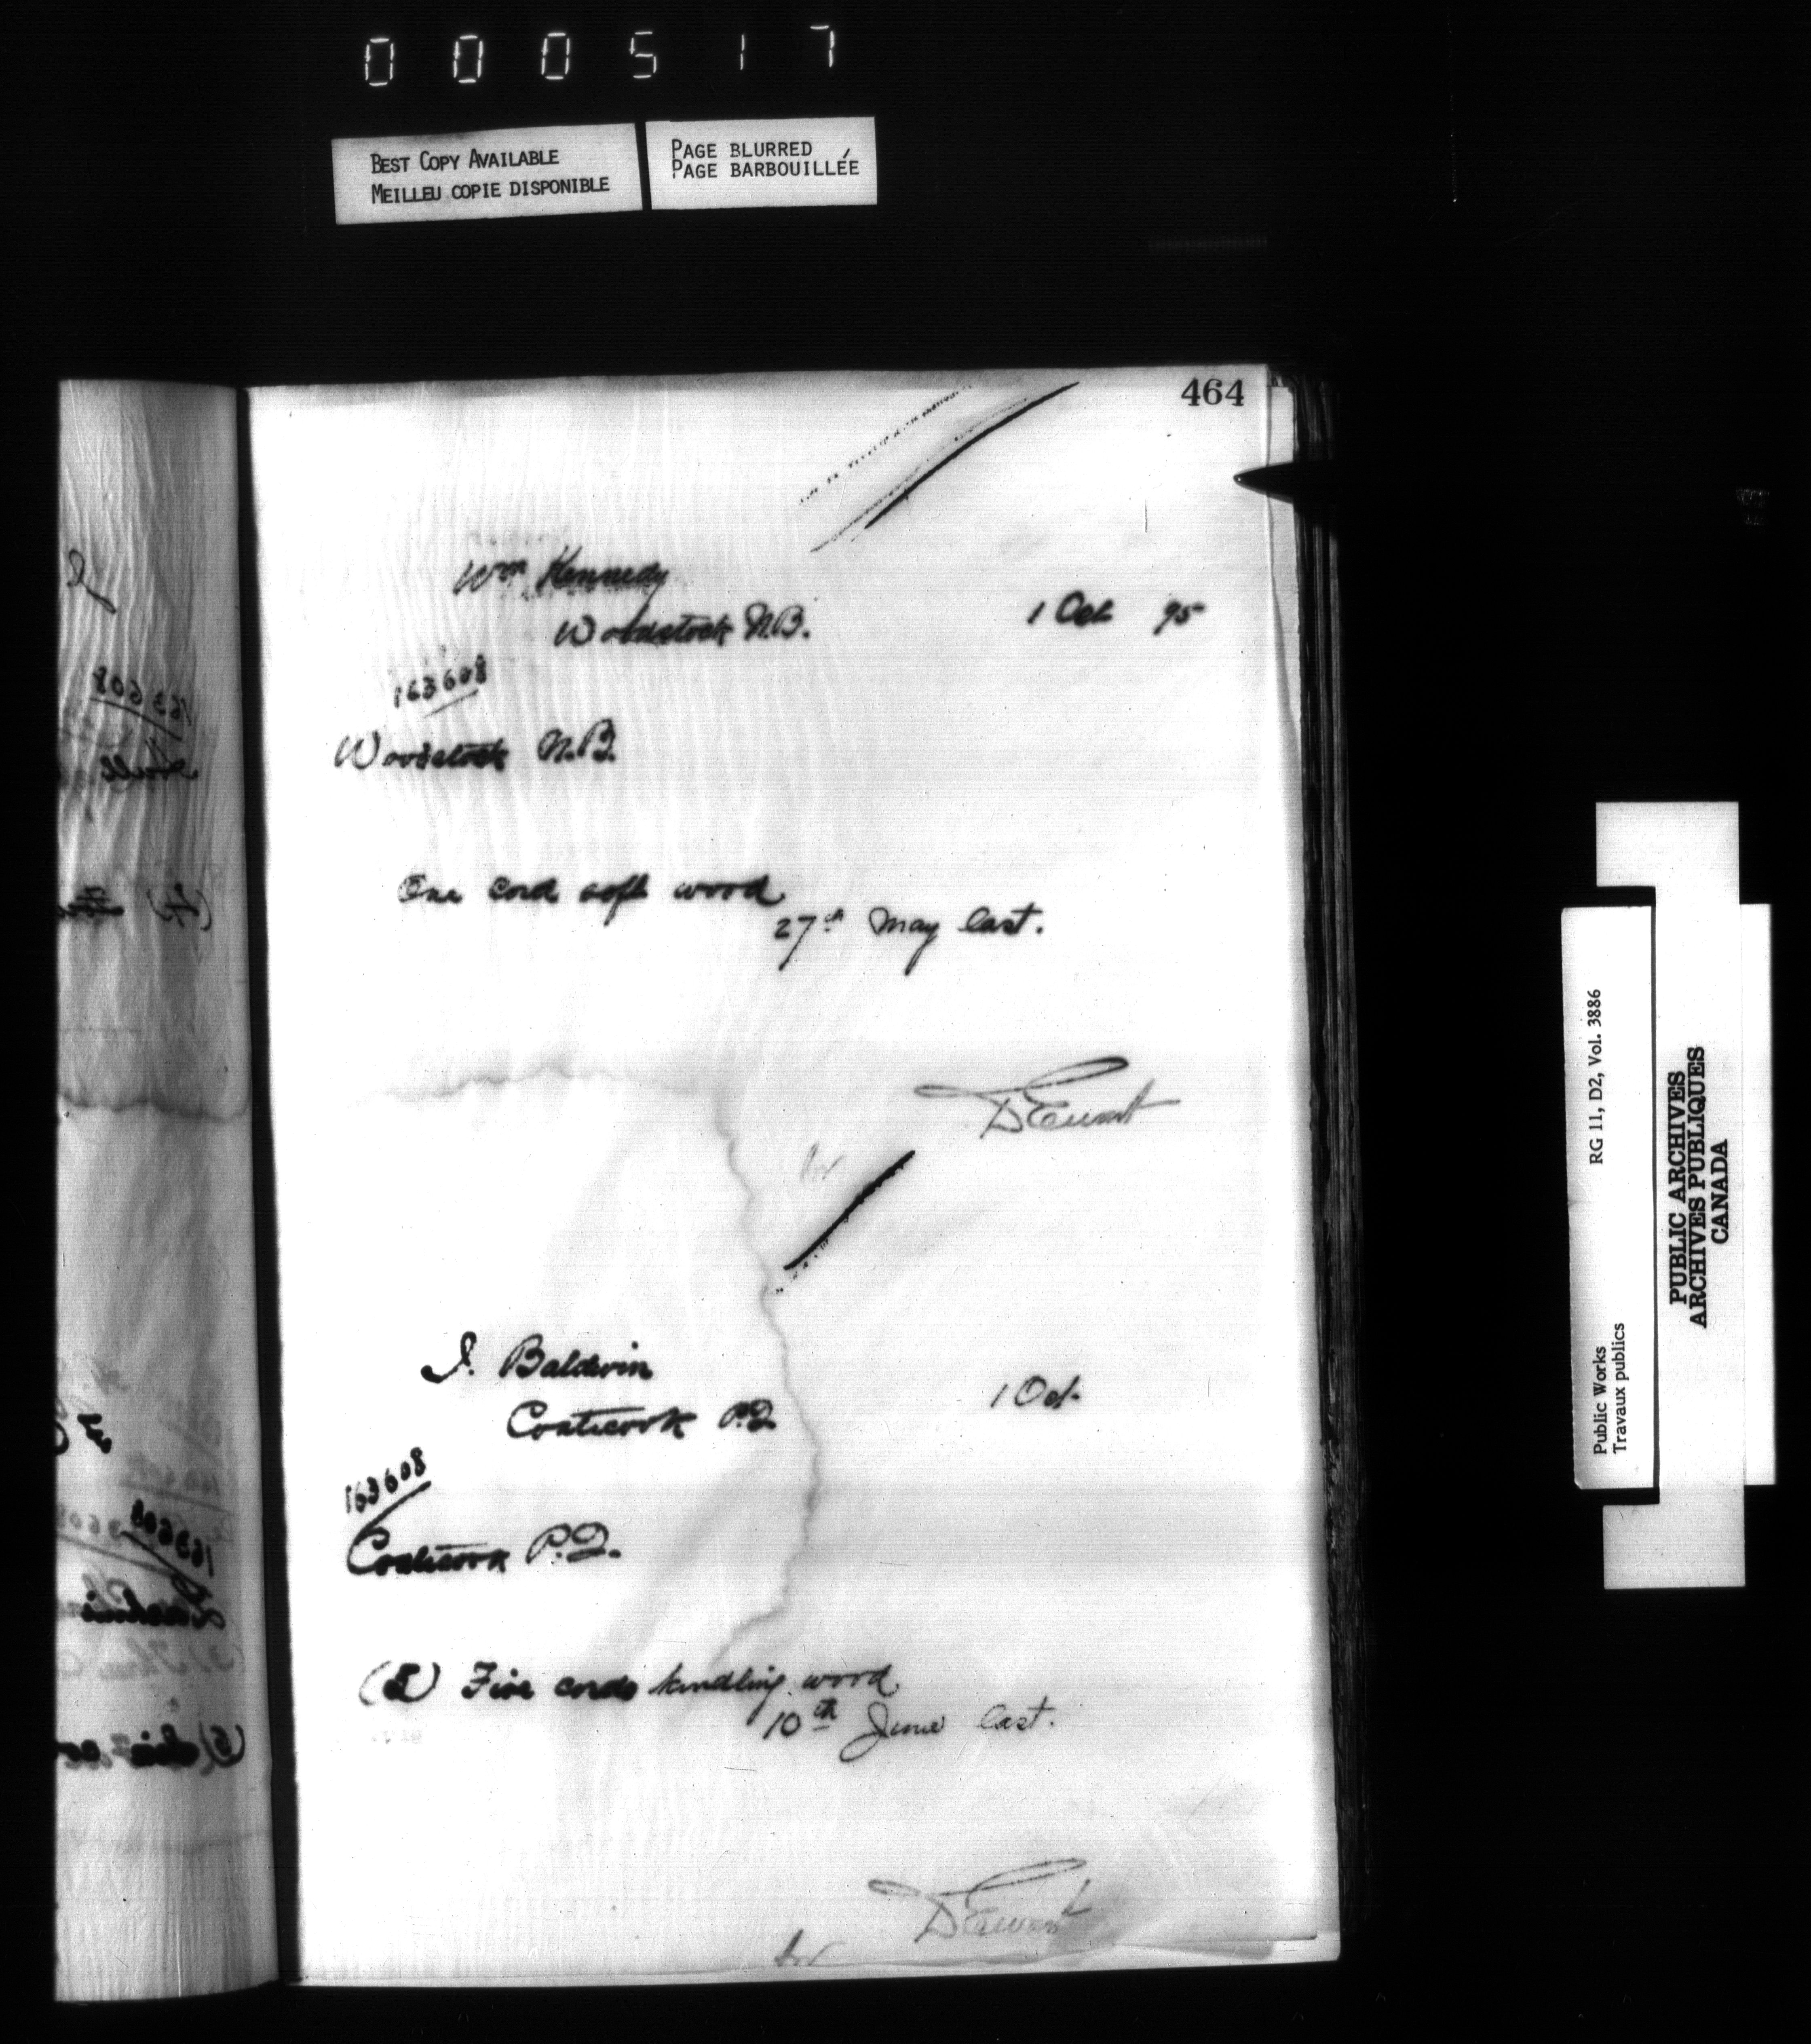 000517
BEST COPY AVAILABLE
MEILLEU COPIE DISPONIBLE
PAGE BLURRED
PAGE BARBOUILLÉE
464
Wm Kennedy
Woodstock N.B.
1 Oct 95
163608
Woodstock N.B.
One cord soft wood
27th May last.
D Ewart
I. Baldwin
Coaticook P.Q
1 Oct
163608
Coaticook P.Q.
(5) Five cords kindling wood
10th June last.
D Ewart
Public Works
Travaux publics
RG 11, D2, Vol. 3886
PUBLIC ARCHIVES
ARCHIVES PUBLIQUES
CANADA